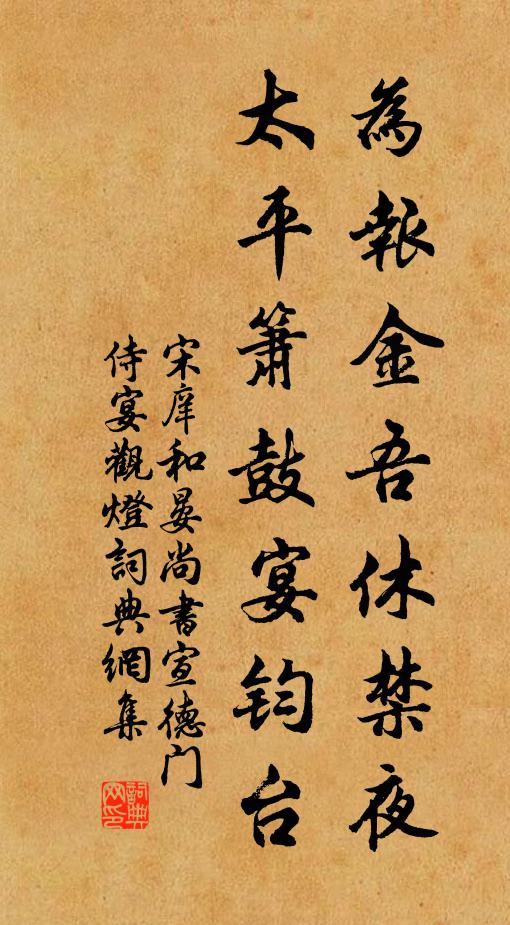 為報金吾休禁夜
太平簫鼓宴鈞台
宋庠和晏尚書宣德门
侍宴觀燈詞典網集
詞典
网印